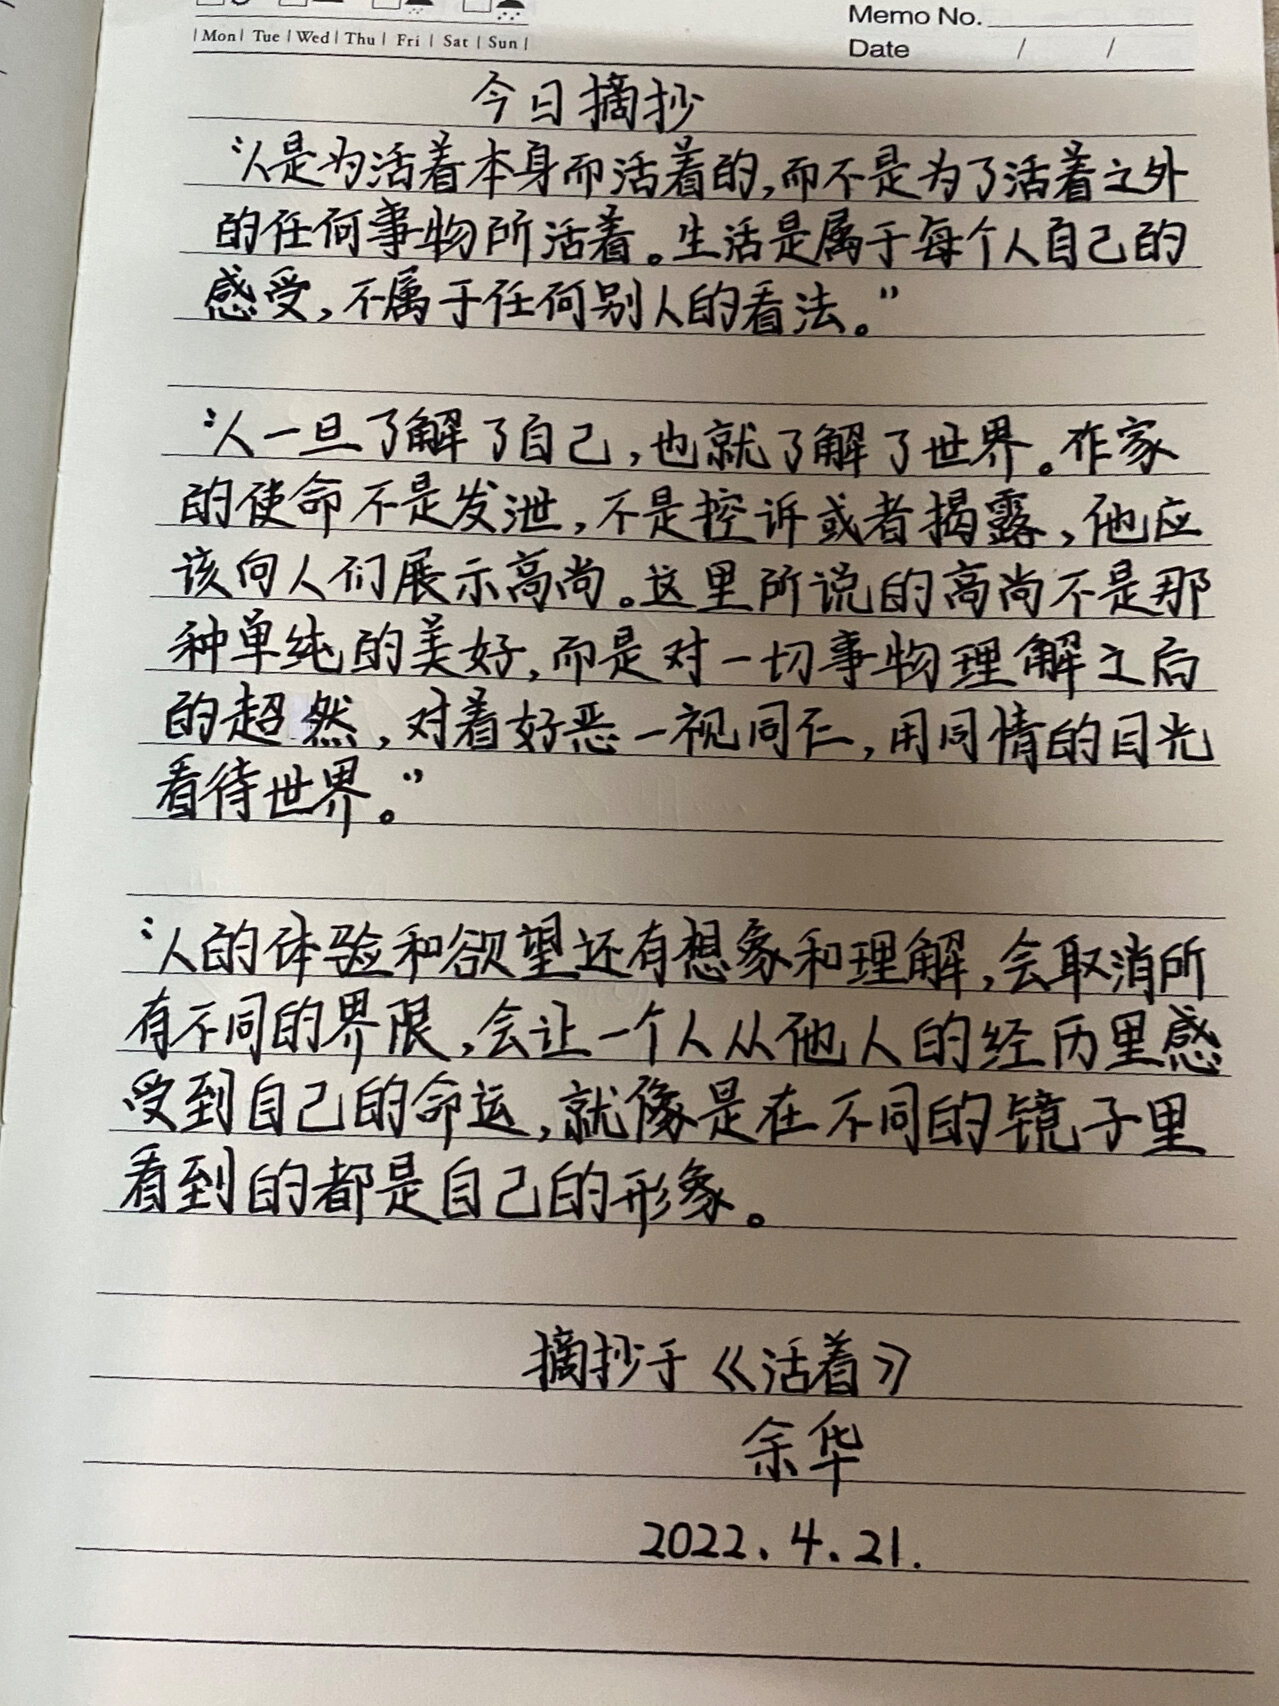 Memo No.
| Mon | Tue | Wed | Thu | Fri | Sat | Sun |
Date / /
今日摘抄
“人是为活着本身而活着的,而不是为了活着之外
的任何事物所活着。生活是属于每个人自己的
感受,不属于任何别人的看法。”
“人一旦了解了自己,也就了解了世界。作家
的使命不是发泄,不是控诉或者揭露,他应
该向人们展示高尚。这里所说的高尚不是那
种单纯的美好,而是对一切事物理解之后
的超然,对着好恶一视同仁,用同情的目光
看待世界。”
“人的体验和欲望还有想象和理解,会取消所
有不同的界限,会让一个人从他人的经历里感
受到自己的命运,就像是在不同的镜子里
看到的都是自己的形象。
摘抄于《活着》
余华
2022.4.21.